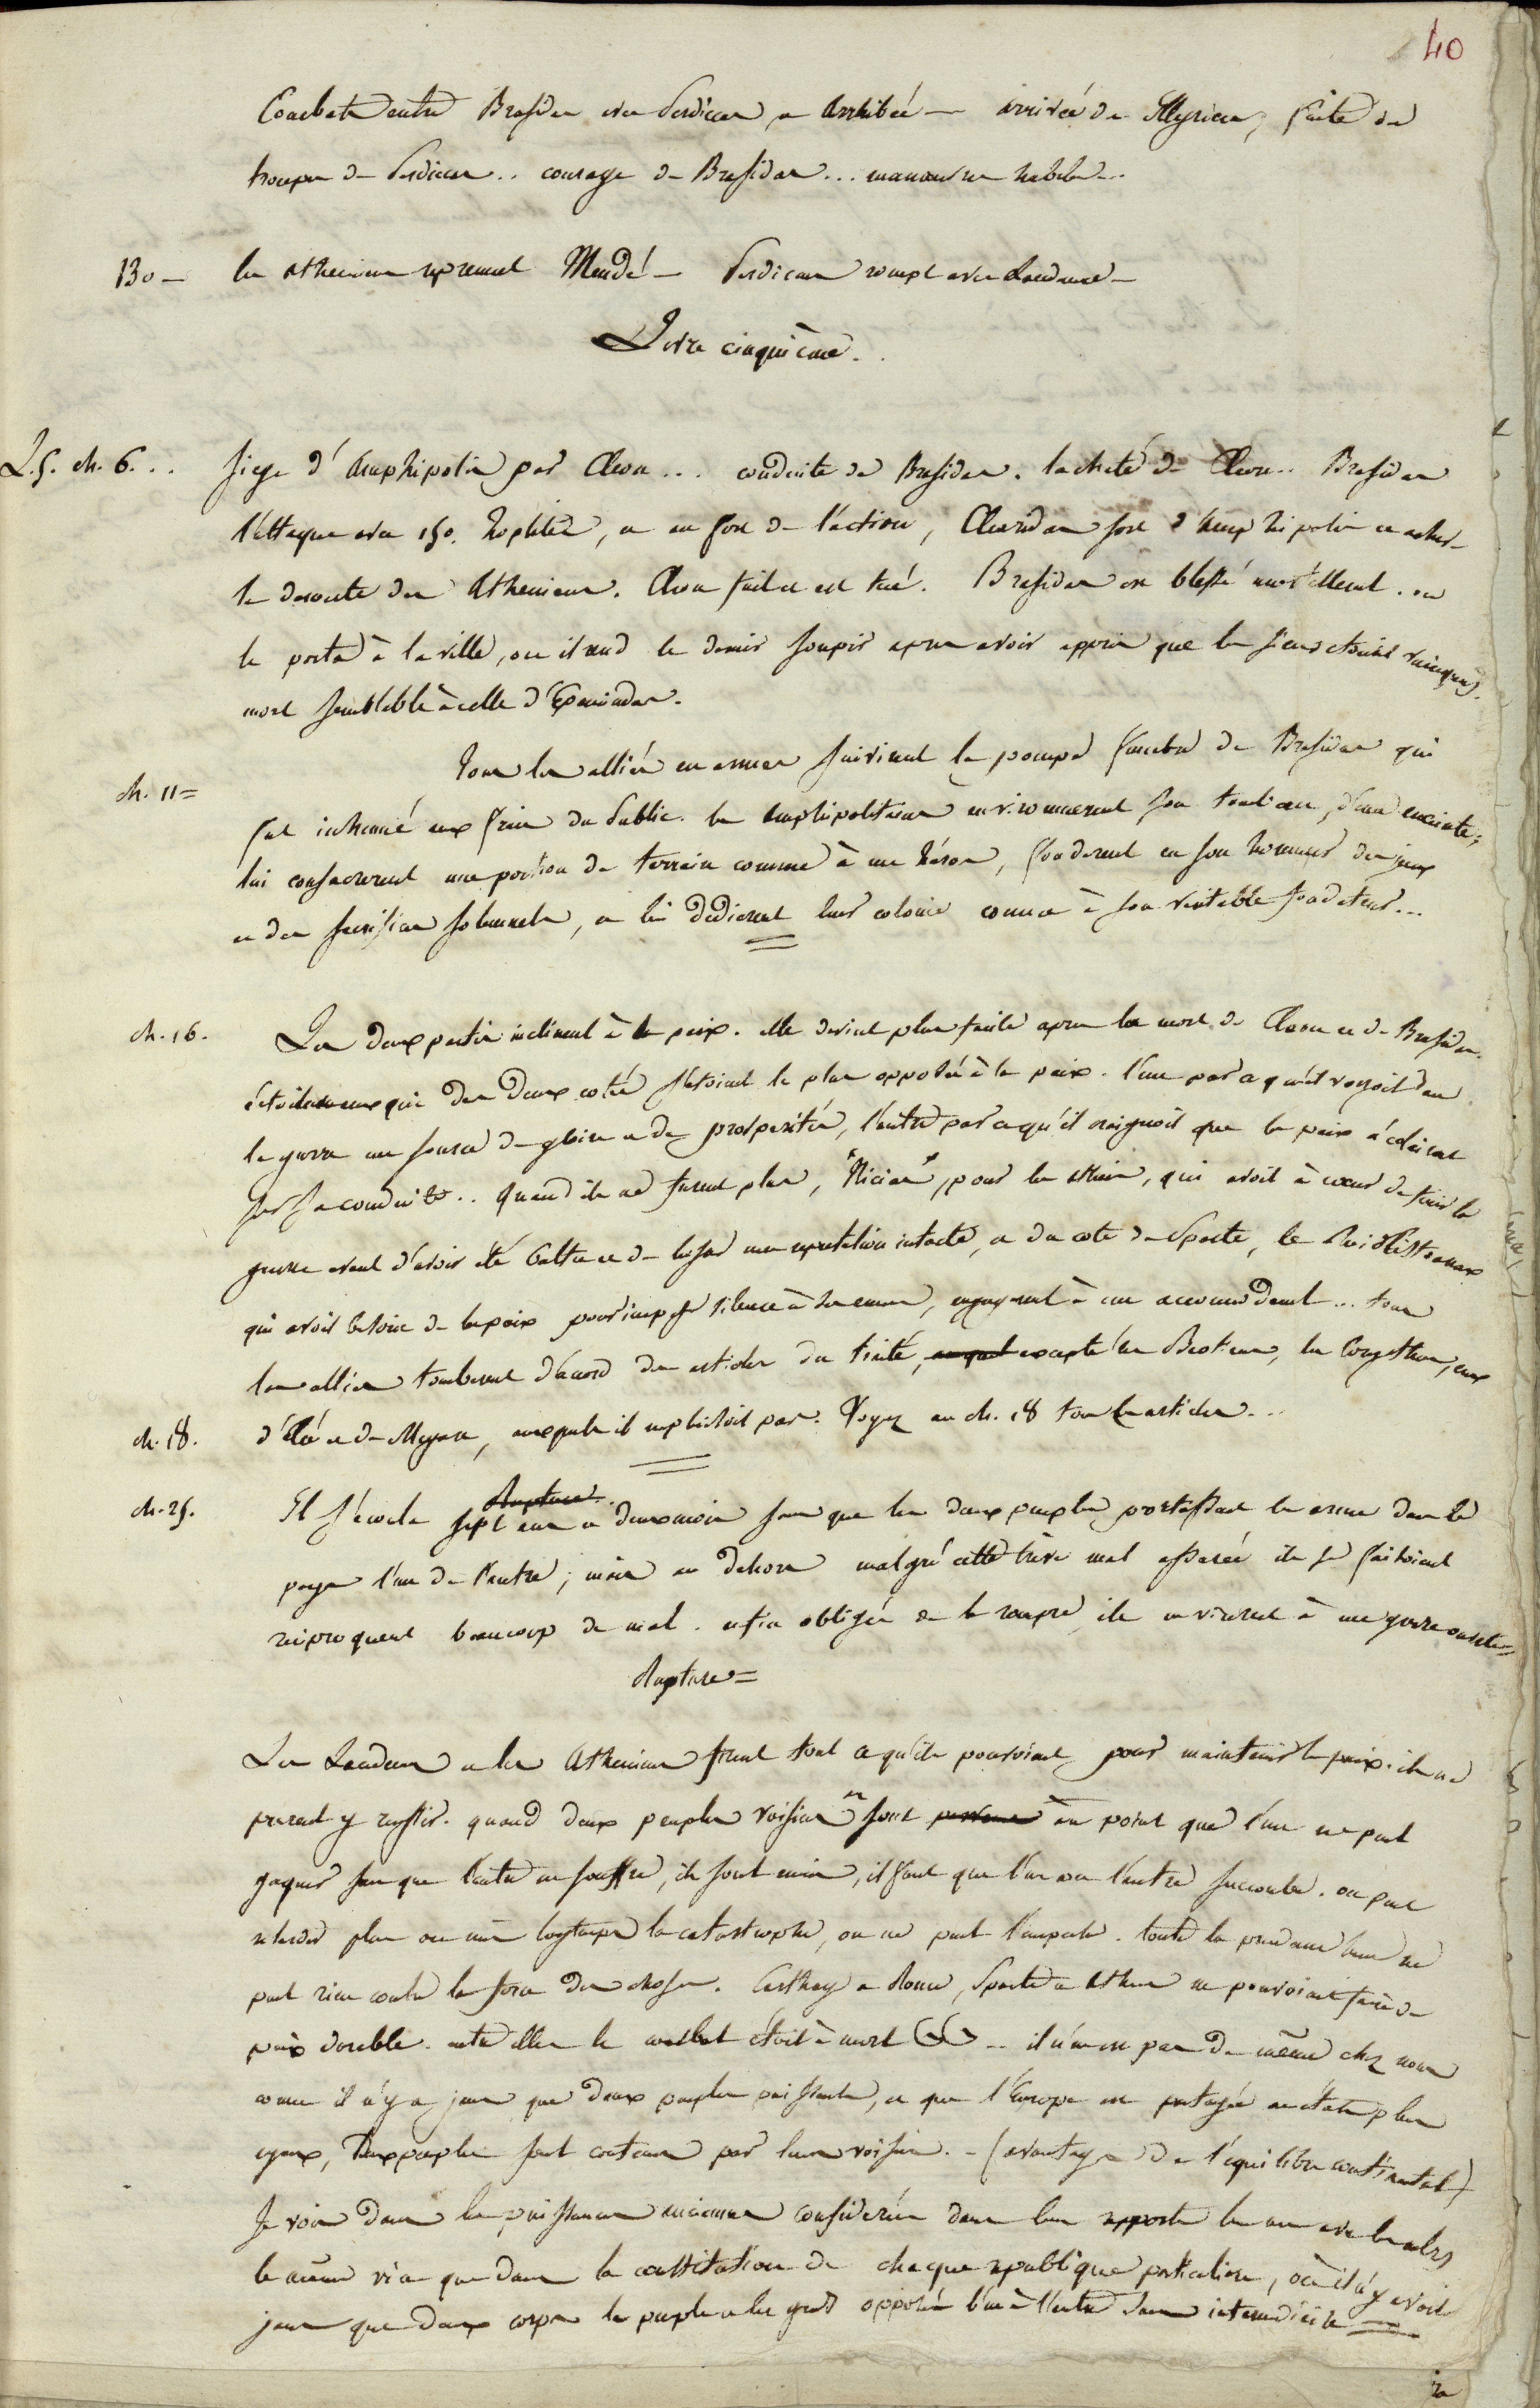 40
Combats entre Brasidas avec Perdiccas, et Arrhibée — arrivée des Illyriens, fuite des
troupes de Perdiccas.. courage de Brasidas... manœuvre habile...
130 — les Atheniens reprennent Mendé — Perdiccas rompt avec Lacedemone —
Livre cinquième.
L. 5. ch. 6... siege d'Amphipolis par Cleon... conduite de Brasidas. lacheté de Cleon.. Brasidas
l'attaque avec 150. hoplites, et au fort de l'action, Clearidas sort d'Amphipolis et acheve
la deroute des Atheniens. Cleon fuit et est tué. Brasidas est blessé mortellement. on
le porta à la ville, ou il rend le dernier soupir apres avoir appris que les siens etoient vainqueurs.
mort semblable à celle d'Epaminondas.
ch. 11 = Tous les alliés en armes suivirent la pompe funebre de Brasidas qui
fut inhumé aux frais du Public. les Amphipolitains environnerent son tombeau, d'une enceinte;
lui consacrerent une portion de terrain comme à un héros, fonderent en son honneur des jeux
et des sacrifices solemnels, et lui dédierent leur colonie comme à son veritable fondateur...
ch. 16. Les deux partis inclinent à la paix. elle devint plus facile apres la mort de Cleon et de Brasidas.
c'étoient ceux qui des deux cotés s'étoient le plus opposés à la paix. l'un parce qu'il voyoit dans
la guerre une source de gloire et de prosperités, l'autre parce qu'il craignoit que la paix n'éclairat
sur sa conduite.. Quand ils ne furent plus, Nicias, pour les Athen., qui avoit à cœur de finir la
guerre avant d'avoir été battu et de laisser une reputation intacte, et du coté de Sparte, le Roi Plistoanax
qui avoit besoin de la paix pour imposer silence à ses ennemis, engagerent à un accommodement... tous
les alliés tomberent d'accord des articles du traité, excepté les Beotiens, les Corynthiens, ceux
ch. 18. d'Elée et de Megare, auxquels il ne plaisoit pas. Voyez au ch. 18 tous les articles...
Rupture.
ch. 25. Il s'écoula sept ans et deux mois sans que les deux peuples portassent les armes dans le
pays l'un de l'autre; mais au dehors malgré cette trève mal assurée ils se faisoient
reciproquement beaucoup de mal. enfin obligés de la rompre, ils en vinrent à une guerre ouverte =
Rupture =
Les Lacedem. et les Atheniens firent tout ce qu'ils pouvoient pour maintenir la paix. ils ne
purent y reussir. quand deux peuples voisins en sont au point que l'un ne peut
gagner sans que l'autre en souffre, ils sont ennemis, il faut que l'un ou l'autre succombe. on peut
retarder plus ou moins longtemps la catastrophe, on ne peut l'empecher. toute la prudence hum. ne
peut rien contre la force des choses. Carthage et Rome, Sparte et Athenes ne pouvoient faire de
paix durable. entre elles le combat étoit à mort .. il n'en est pas de même chez nous
comme il n'y a jamais que deux peuples puissants, et que l'Europe est partagée en états plus
egaux, deux peuples sont contenus par leurs voisins. — (avantages de l'équilibre continental)
Je vois dans les puissances anciennes considerées dans leurs rapports les unes avec les autres
le même vice que dans la constitution de chaque republique particuliere, où il n'y avoit
jamais que deux corps le peuple et les grands opposés l'un à l'autre sans intermédiaire